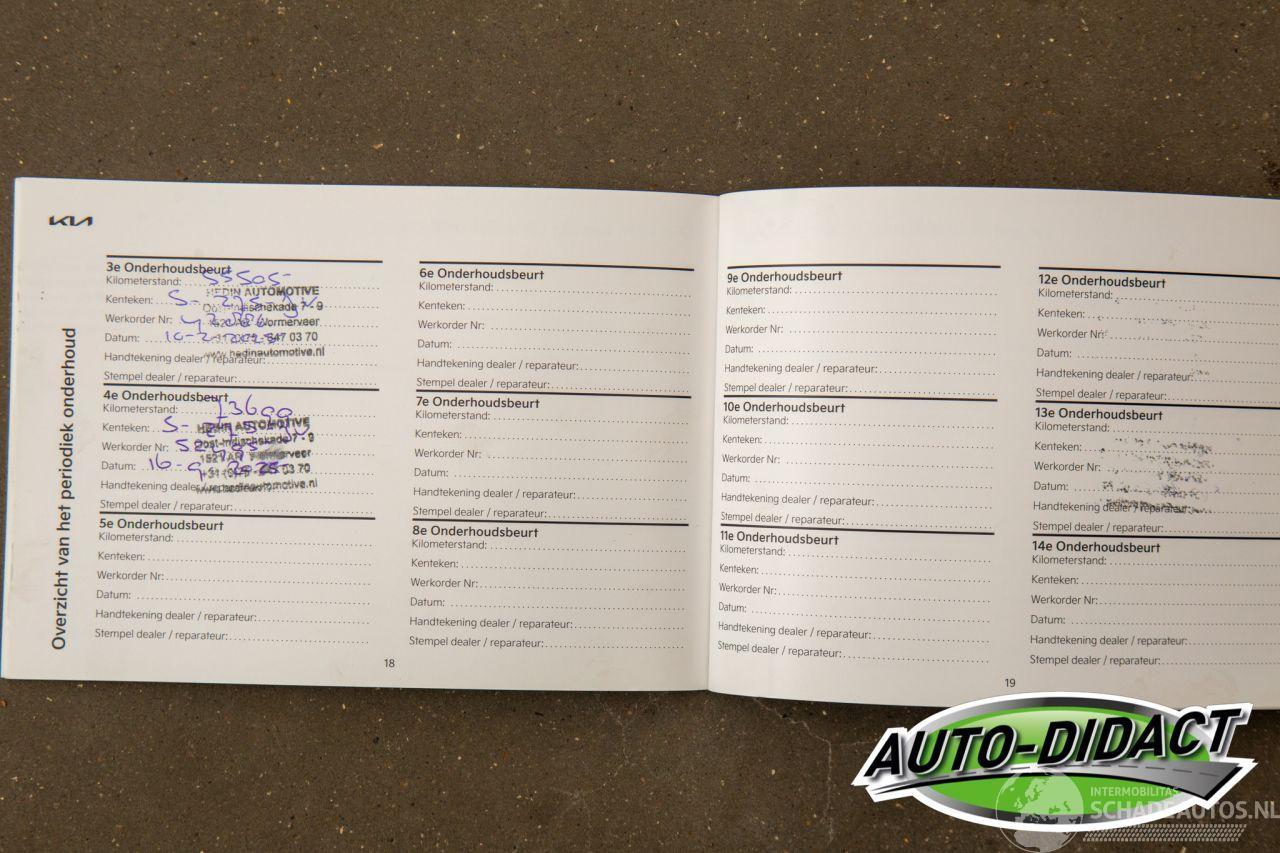 KIA
Overzicht van het periodiek onderhoud
3e Onderhoudsbeurt
Kilometerstand: 55505-
HEDIN AUTOMOTIVE
Kenteken: S-
Oost-Indischekade 7 - 9
Werkorder Nr:
Wormerveer
Datum: 10-2-2025
47 03 70
Handtekening dealer / reparateur:
www.hedinautomotive.nl
Stempel dealer / reparateur:
4e Onderhoudsbeurt
Kilometerstand: 73600
HEDIN AUTOMOTIVE
Kenteken: S-
Oost-Indischekade 7 - 9
Werkorder Nr:
Datum: 16-9-2025
03 70
Handtekening dealer / reparateur:
www.hedinautomotive.nl
Stempel dealer / reparateur:
5e Onderhoudsbeurt
Kilometerstand:
Kenteken:
Werkorder Nr:
Datum:
Handtekening dealer / reparateur:
Stempel dealer / reparateur:
6e Onderhoudsbeurt
Kilometerstand:
Kenteken:
Werkorder Nr:
Datum:
Handtekening dealer / reparateur:
Stempel dealer / reparateur:
7e Onderhoudsbeurt
Kilometerstand:
Kenteken:
Werkorder Nr:
Datum:
Handtekening dealer / reparateur:
Stempel dealer / reparateur:
8e Onderhoudsbeurt
Kilometerstand:
Kenteken:
Werkorder Nr:
Datum:
Handtekening dealer / reparateur:
Stempel dealer / reparateur:
18
9e Onderhoudsbeurt
Kilometerstand:
Kenteken:
Werkorder Nr:
Datum:
Handtekening dealer / reparateur:
Stempel dealer / reparateur:
10e Onderhoudsbeurt
Kilometerstand:
Kenteken:
Werkorder Nr:
Datum:
Handtekening dealer / reparateur:
Stempel dealer / reparateur:
11e Onderhoudsbeurt
Kilometerstand:
Kenteken:
Werkorder Nr:
Datum:
Handtekening dealer / reparateur:
Stempel dealer / reparateur:
12e Onderhoudsbeurt
Kilometerstand:
Kenteken:
Werkorder Nr:
Datum:
Handtekening dealer / reparateur:
Stempel dealer / reparateur:
13e Onderhoudsbeurt
Kilometerstand:
Kenteken:
Werkorder Nr:
Datum:
Handtekening dealer / reparateur:
Stempel dealer / reparateur:
14e Onderhoudsbeurt
Kilometerstand:
Kenteken:
Werkorder Nr:
Datum:
Handtekening dealer / reparateur:
Stempel dealer / reparateur:
19
AUTO-DIDACT
INTERMOBILITAS
SCHADEAUTOS.NL